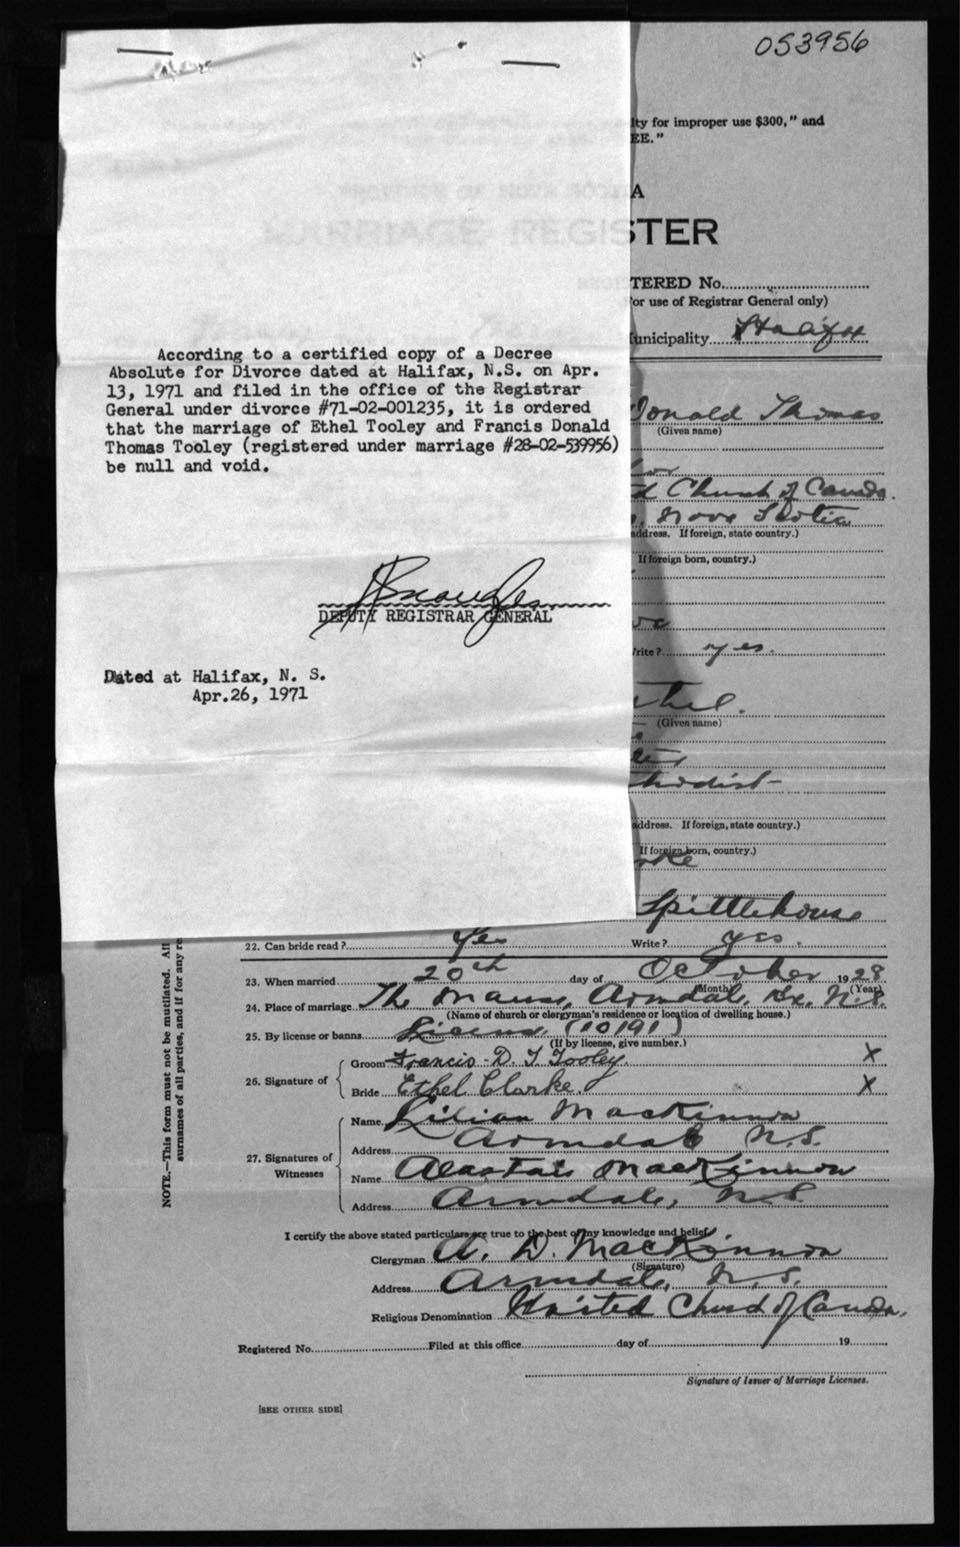 053956
lty for improper use $300," and
EE."
A
STER
TERED No.
or use of Registrar General only)
unicipality Halifax
According to a certified copy of a Decree
Absolute for Divorce dated at Halifax, N.S. on Apr.
13, 1971 and filed in the office of the Registrar
General under divorce #71-02-001235, it is ordered
that the marriage of Ethel Tooley and Francis Donald
Thomas Tooley (registered under marriage #28-02-539956)
be null and void.
DEPUTY REGISTRAR GENERAL
Dated at Halifax, N. S.
Apr.26, 1971
Donald Thomas
(Given name)
d Church of Canada.
Nova Scotia
address. If foreign, state country.)
If foreign born, country.)
Write? yes.
thel.
(Given name)
thodist
address. If foreign, state country.)
If foreign born, country.)
Spittlehouse
22. Can bride read? Yes Write? yes.
23. When married 20th day of October 1928
(Month) (Year)
24. Place of marriage The Manse, Armdale, Hx, N.S.
(Name of church or clergyman's residence or location of dwelling house.)
25. By license or banns License (10191)
(If by license, give number.)
26. Signature of
Groom Francis D. T. Tooley X
Bride Ethel Clarke X
27. Signatures of Witnesses
Name Lilian MacKinnon
Address Armdale N.S.
Name Alastair MacKinnon
Address Armdale, N.S.
I certify the above stated particulars are true to the best of my knowledge and belief
Clergyman A. D. MacKinnon
(Signature)
Address Armdale, N.S.
Religious Denomination United Church of Canada.
Registered No. Filed at this office day of 19
Signature of Issuer of Marriage Licenses.
[SEE OTHER SIDE]
NOTE.—This form must not be mutilated. All
surnames of all parties, and if for any re